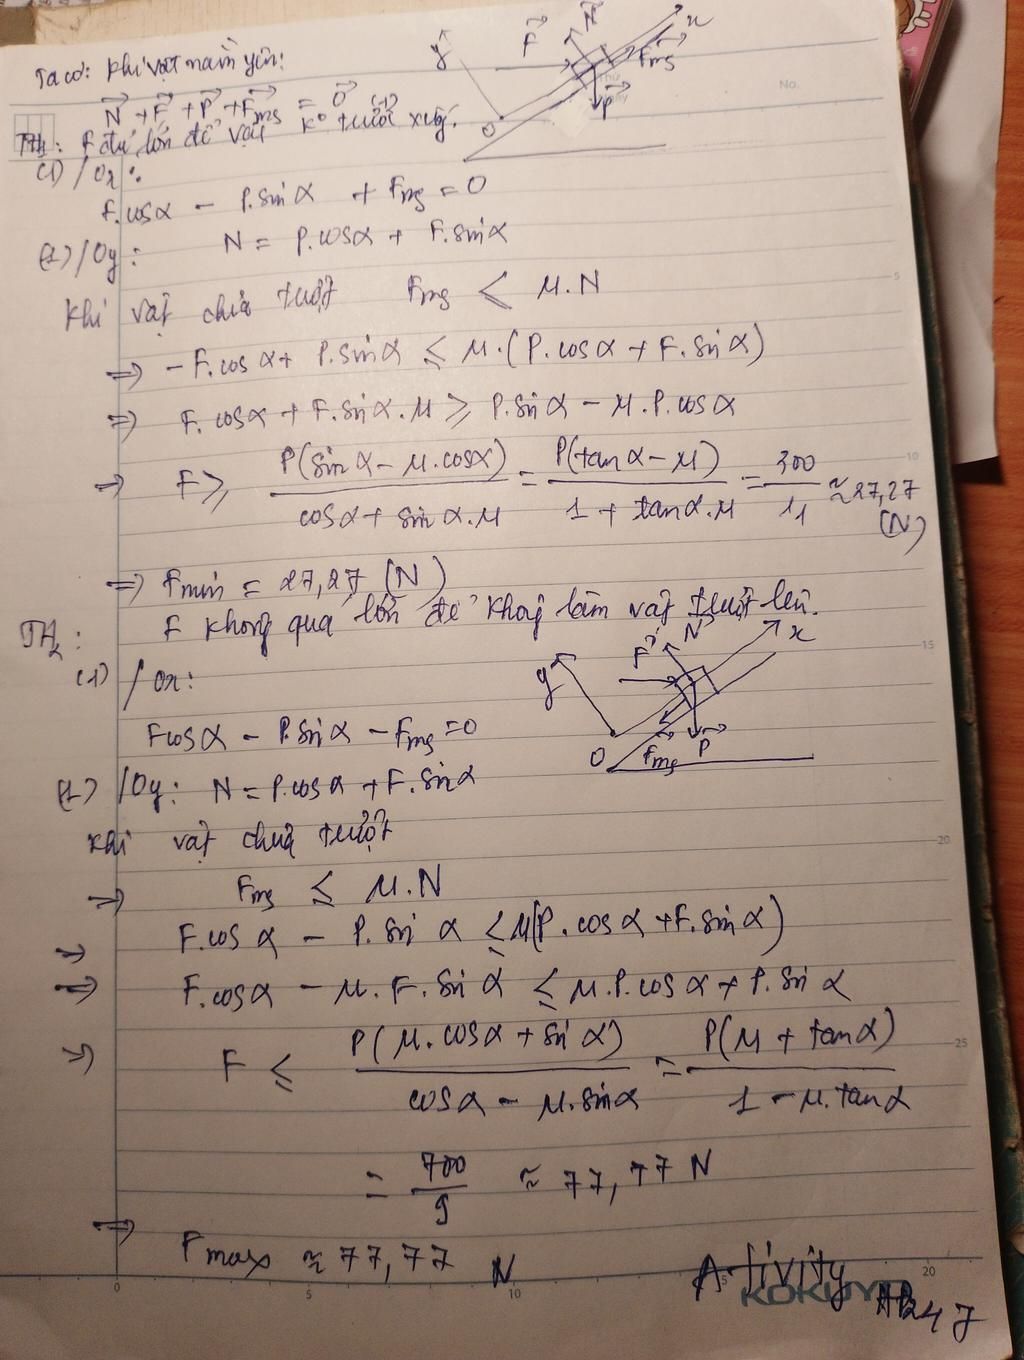 Ta có: Khi vật nằm yên:
N⃗ + F⃗ + P⃗ + F⃗ms = 0⃗ (1)
TH1: F đủ lớn để vật k° trượt xuống.
(1) / Ox:
F.cosα - P.sinα + Fms = 0
(1) / Oy: N = P.cosα + F.sinα
Khi vật chưa trượt Fms ≤ μ.N
=> -F.cosα + P.sinα ≤ μ.(P.cosα + F.sinα)
=> F.cosα + F.sinα.μ ≥ P.sinα - μ.P.cosα
=> F ≥ P(sinα - μ.cosα) / (cosα + sinα.μ) = P(tanα - μ) / (1 + tanα.μ) = 300/11 ≈ 27,27 (N)
=> Fmin = 27,27 (N)
TH2: F không quá lớn để không làm vật trượt lên.
(1) / Ox:
Fcosα - P.sinα - Fms = 0
(1) / Oy: N = P.cosα + F.sinα
Khi vật chưa trượt
=> Fms ≤ μ.N
=> F.cosα - P.sinα ≤ μ(P.cosα + F.sinα)
=> F.cosα - μ.F.sinα ≤ μ.P.cosα + P.sinα
=> F ≤ P(μ.cosα + sinα) / (cosα - μ.sinα) = P(μ + tanα) / (1 - μ.tanα)
= 700/9 ≈ 77,77 N
=> Fmax ≈ 77,77 N
y F⃗ N⃗ x
F⃗ms
P⃗
O
No.
y F⃗ N⃗ x
O F⃗ms P⃗
5
10
15
20
25
0 5 10 20
KOKUYO